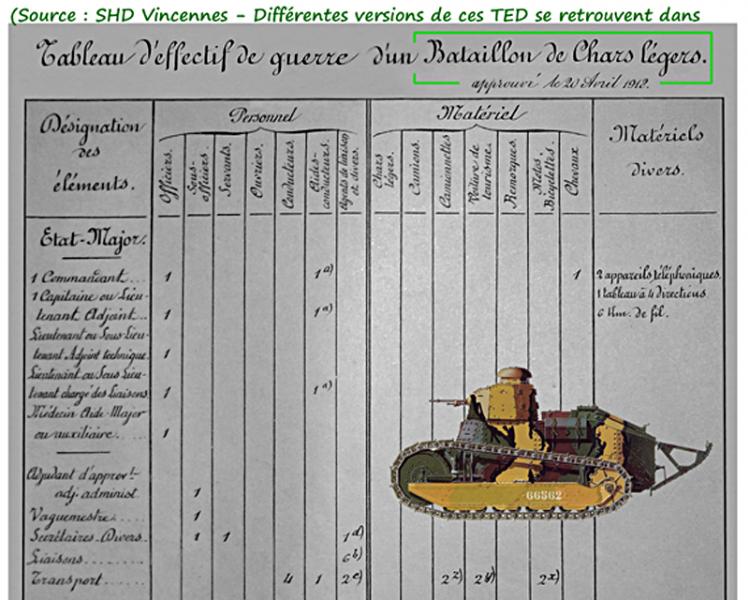 (Source : SHD Vincennes - Différentes versions de ces TED se retrouvent dans
Tableau d'effectif de guerre d'un Bataillon de Chars légers.
approuvé le 20 Avril 1912.
Désignation
des
éléments.
Personnel
Officiers.
Sous-
officiers.
Servants.
Ouvriers.
Conducteurs.
Aides-
conducteurs.
Agents de liaison
et divers.
Matériel
Chars
légers.
Camions.
Camionnettes
Voiture de
tourisme.
Remorques.
Motos
Bicyclettes.
Chevaux
Matériels
divers.
Etat-Major.
1 Commandant... 1 1 a) 1 2 appareils téléphoniques.
1 Capitaine ou Lieu- 1 tableau à 4 directions
tenant Adjoint.. 1 1 a) 6 Km. de fil.
Lieutenant ou Sous-Lieu-
tenant Adjoint technique. 1
Lieutenant ou Sous Lieu-
tenant chargé des Liaisons 1 1 a)
Médecin Aide-Major
ou auxiliaire.... 1
Adjudant d'approvt-
adj. administ. 1
Vaguemestre..... 1
Secrétaires-Divers.. 1 1 1 d)
Liaisons...... 6 b)
Transport..... 4 1 2 c) 2 z) 2 y) 2 x)
66562